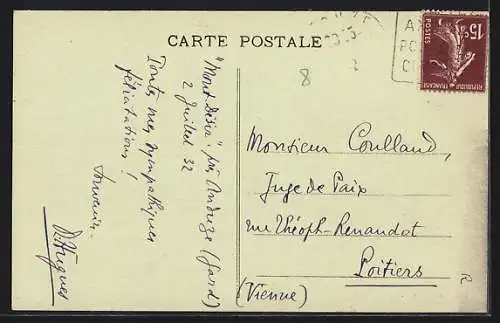 CARTE POSTALE
8
15c
POSTES
REPUBLIQUE FRANÇAISE
"Mont Désir" près Anduze (Gard)
2 Juillet 32
Toutes mes sympathiques
félicitations !
Souvenir.
D. Hugues
Monsieur Coulland,
Juge de Paix
rue Théoph-Renaudot
Poitiers
(Vienne)
R